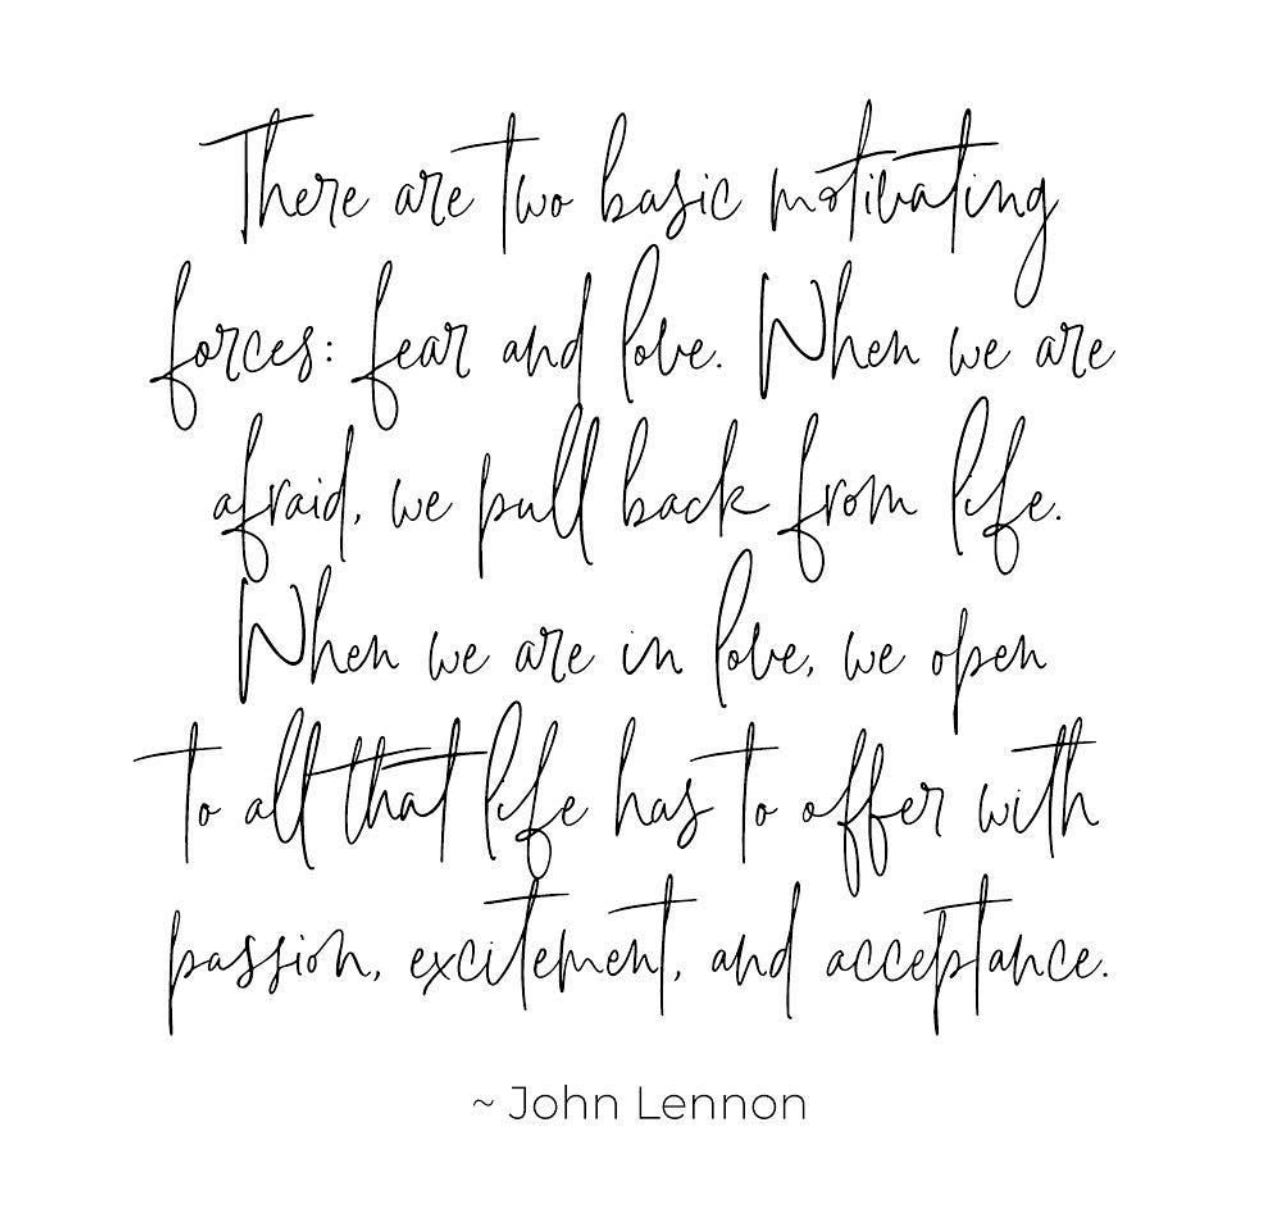 There are two basic motivating
forces: fear and love. When we are
afraid, we pull back from life.
When we are in love, we open
to all that life has to offer with
passion, excitement, and acceptance.
~ John Lennon